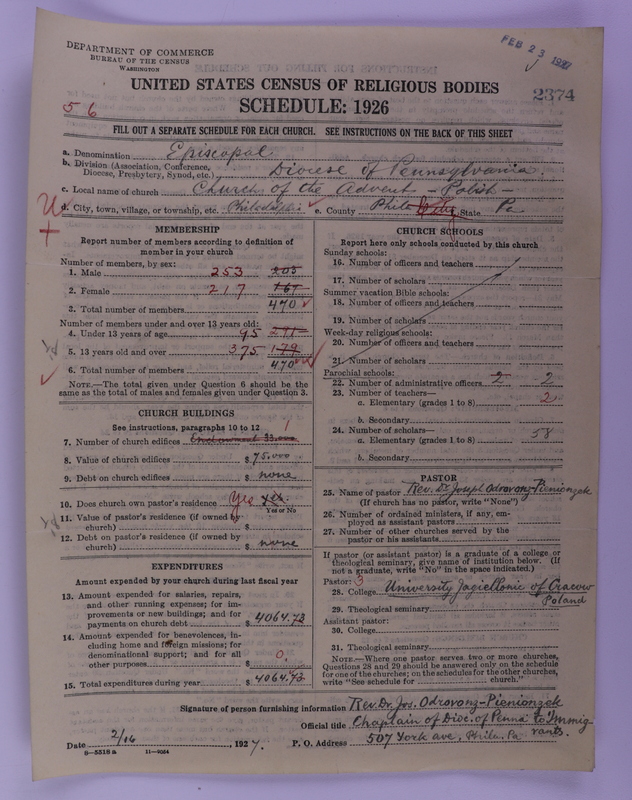 DEPARTMENT OF COMMERCE
BUREAU OF THE CENSUS
WASHINGTON
FEB 23 1927
UNITED STATES CENSUS OF RELIGIOUS BODIES
SCHEDULE: 1926
2374
56
FILL OUT A SEPARATE SCHEDULE FOR EACH CHURCH. SEE INSTRUCTIONS ON THE BACK OF THIS SHEET
a. Denomination Episcopal
b. Division (Association, Conference, Diocese, Presbytery, Synod, etc.) Diocese of Pennsylvania
c. Local name of church Church of the Advent - Polish -
d. City, town, village, or township, etc. Philadelphia e. County Phila State Pa
MEMBERSHIP
Report number of members according to definition of member in your church
Number of members, by sex:
1. Male 253 205
2. Female 217 167
3. Total number of members 470
Number of members under and over 13 years old:
4. Under 13 years of age 95 291
5. 13 years old and over 375 179
6. Total number of members 470
NOTE.—The total given under Question 6 should be the same as the total of males and females given under Question 3.
CHURCH BUILDINGS
See instructions, paragraphs 10 to 12
7. Number of church edifices 1
8. Value of church edifices $ 75,000
9. Debt on church edifices $ none
10. Does church own pastor's residence Yes Yes
Yes or No
11. Value of pastor's residence (if owned by church) $
12. Debt on pastor's residence (if owned by church) $ none
EXPENDITURES
Amount expended by your church during last fiscal year
13. Amount expended for salaries, repairs, and other running expenses; for improvements or new buildings; and for payments on church debt $ 4064.73
14. Amount expended for benevolences, including home and foreign missions; for denominational support; and for all other purposes $ 0.
15. Total expenditures during year $ 4064.73
CHURCH SCHOOLS
Report here only schools conducted by this church
Sunday schools:
16. Number of officers and teachers
17. Number of scholars
Summer vacation Bible schools:
18. Number of officers and teachers
19. Number of scholars
Week-day religious schools:
20. Number of officers and teachers
21. Number of scholars
Parochial schools:
22. Number of administrative officers 2 2
23. Number of teachers—
a. Elementary (grades 1 to 8) 2
b. Secondary
24. Number of scholars—
a. Elementary (grades 1 to 8) 58
b. Secondary
PASTOR
25. Name of pastor Rev. Dr. Joseph Odrovonz-Pienionzek
(If church has no pastor, write "None")
26. Number of ordained ministers, if any, employed as assistant pastors
27. Number of other churches served by the pastor or his assistants
If pastor (or assistant pastor) is a graduate of a college or theological seminary, give name of institution below. (If not a graduate, write "No" in the space indicated.)
Pastor: 3
28. College University Jagiellonic of Cracow
Poland
29. Theological seminary
Assistant pastor:
30. College
31. Theological seminary
NOTE.—Where one pastor serves two or more churches, Questions 28 and 29 should be answered only on the schedule for one of the churches; on the schedules for the other churches, write "See schedule for ........ church."
Signature of person furnishing information Rev. Dr. Jos. Odrovonz-Pienionzek
Official title Chaplain of Dioc. of Penna to Immigrants.
Date 2/16, 1927. P. O. Address 507 York ave. Phila. Pa
8—5518 a 11—9054